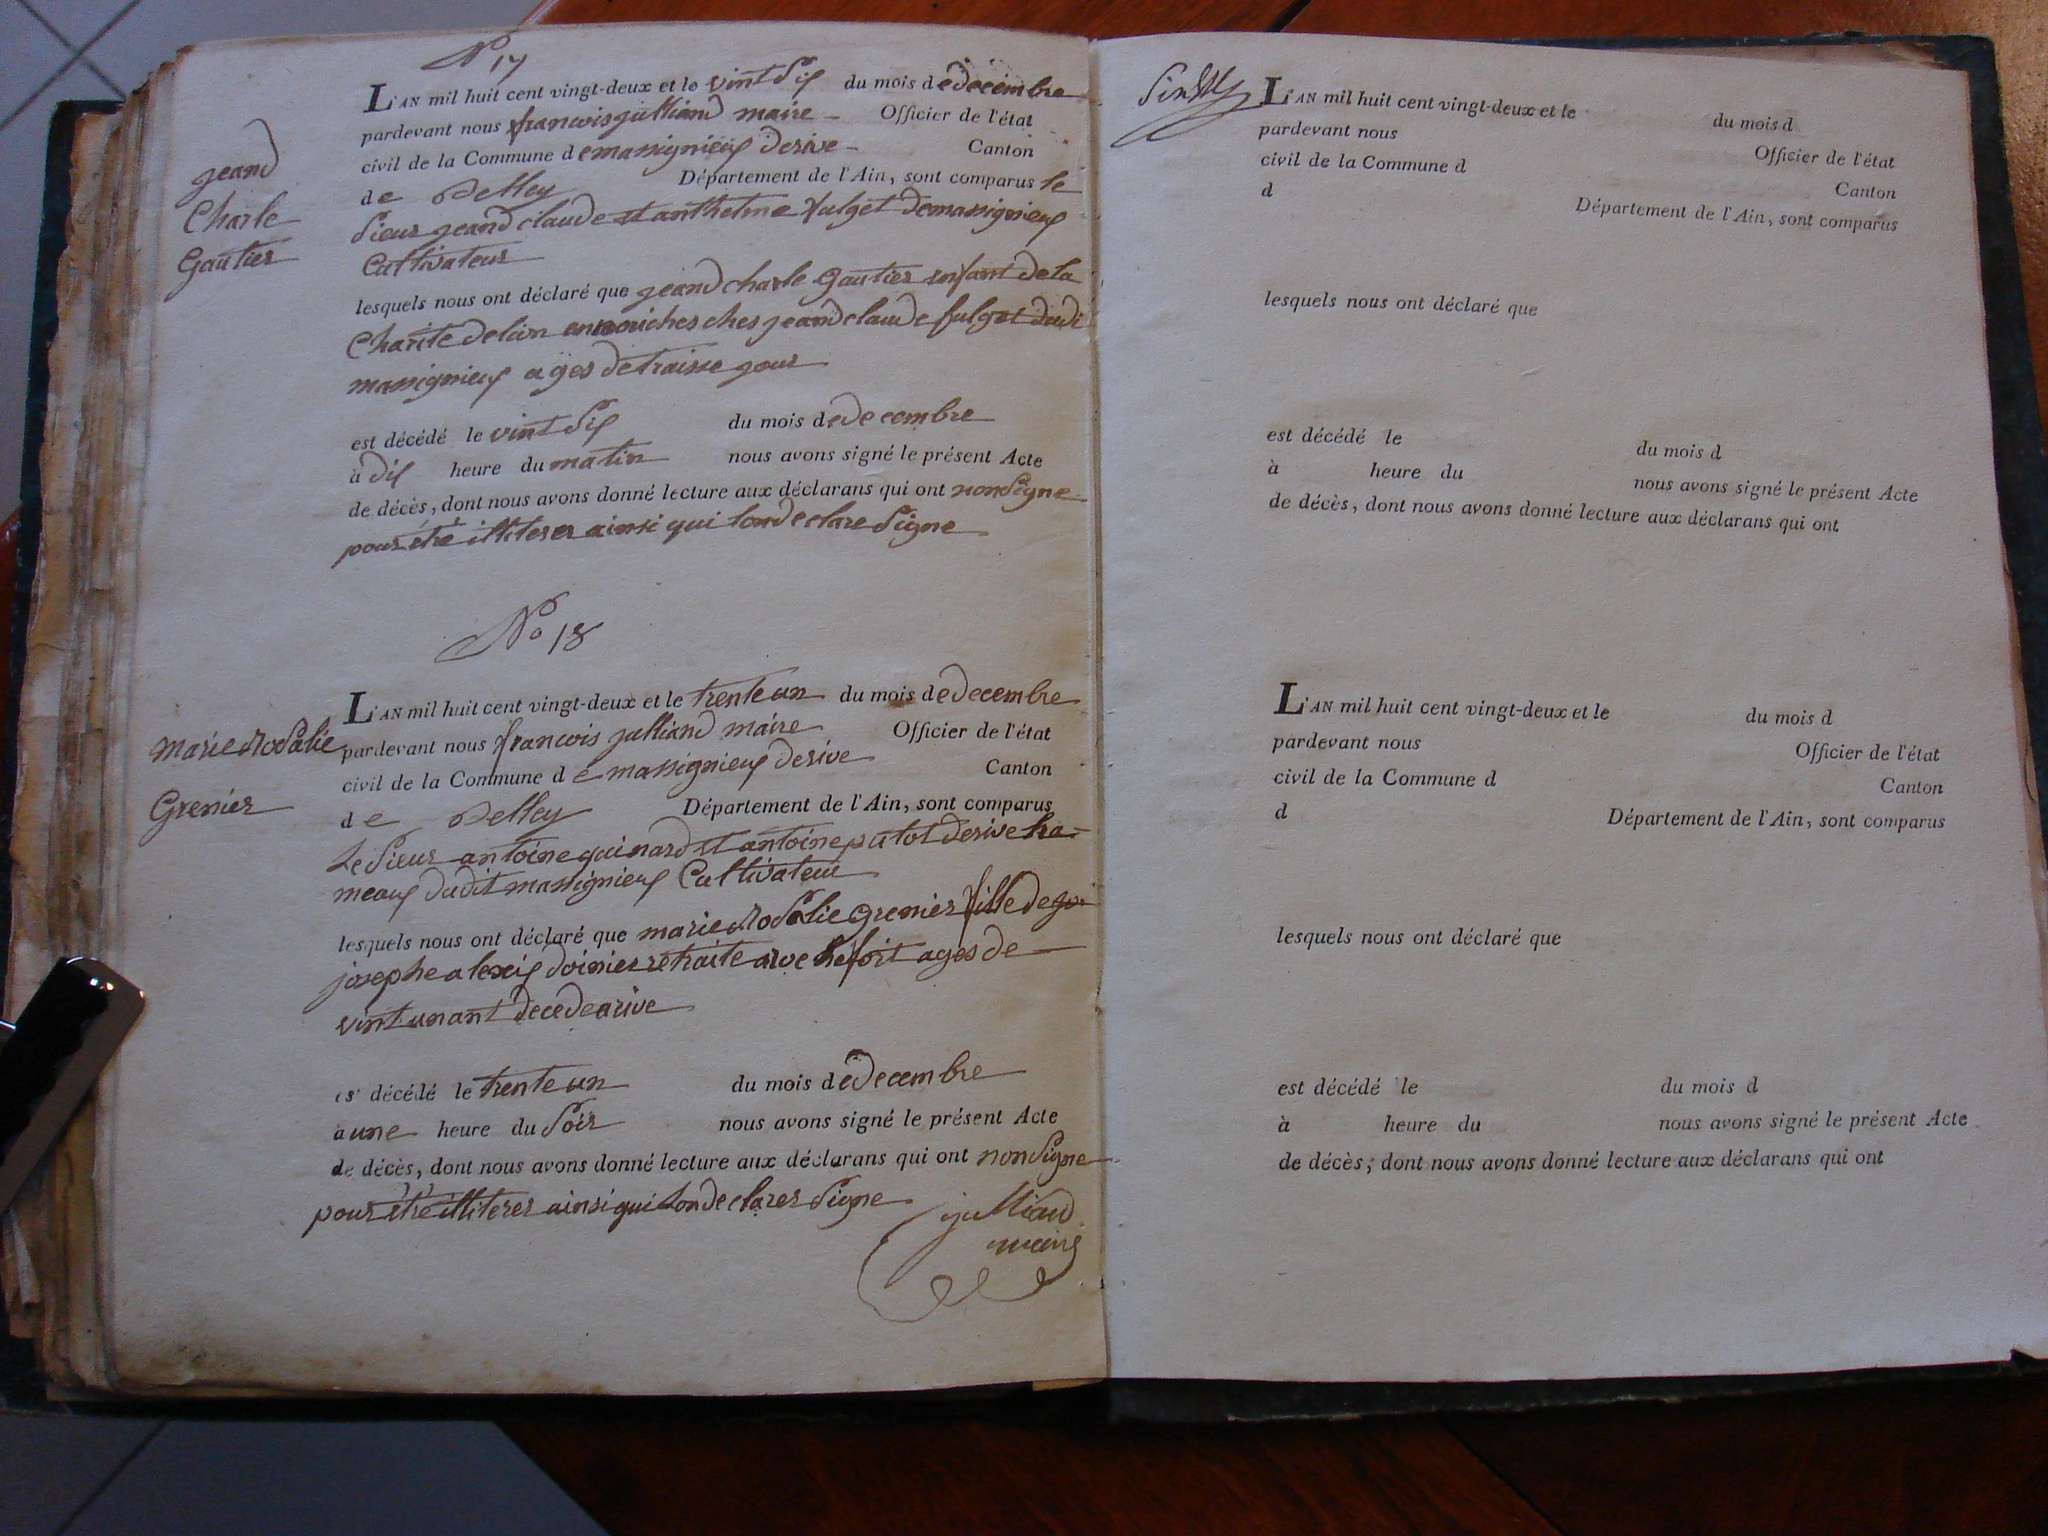 No 17
L'AN mil huit cent vingt-deux et le vint Six du mois de decembre
pardevant nous francois julliand maire Officier de l'état
civil de la Commune de massignieux derive Canton
de Belley Département de l'Ain, sont comparus le
Sieur jeand claude et anthelme fulget demassignieux
Cultivateur
lesquels nous ont déclaré que jeand charle Gautier enfant de la
Charite delion ches jeand claude fulget dudi
massignieux ages de traisse jour
est décédé le vint Six du mois de decembre
à dix heure du matin nous avons signé le présent Acte
de décès, dont nous avons donné lecture aux déclarans qui ont non Signe
pour être illiterer ainsi qui londeclare Signe
jeand
Charle
Gautier
No 18
L'AN mil huit cent vingt-deux et le trente un du mois de decembre
pardevant nous francois julliand maire Officier de l'état
civil de la Commune de massignieux derive Canton
de Belley Département de l'Ain, sont comparus
Le Sieur antoine guinard et antoine putot derive ha-
meaux dudit massignieux Cultivateur
lesquels nous ont déclaré que marie Rosalie Grenier fille de
josephe alexis retraite ages de
vint un ant decede arive
est décédé le trente un du mois de decembre
à une heure du Soir nous avons signé le présent Acte
de décès, dont nous avons donné lecture aux déclarans qui ont non Signe
pour être illiterer ainsi qui londeclarer Signe
julliand
maire
marie Rosalie
Grenier
L'AN mil huit cent vingt-deux et le du mois d
pardevant nous Officier de l'état
civil de la Commune d Canton
d Département de l'Ain, sont comparus
lesquels nous ont déclaré que
est décédé le du mois d
à heure du nous avons signé le présent Acte
de décès, dont nous avons donné lecture aux déclarans qui ont
L'AN mil huit cent vingt-deux et le du mois d
pardevant nous Officier de l'état
civil de la Commune d Canton
d Département de l'Ain, sont comparus
lesquels nous ont déclaré que
est décédé le du mois d
à heure du nous avons signé le présent Acte
de décès, dont nous avons donné lecture aux déclarans qui ont